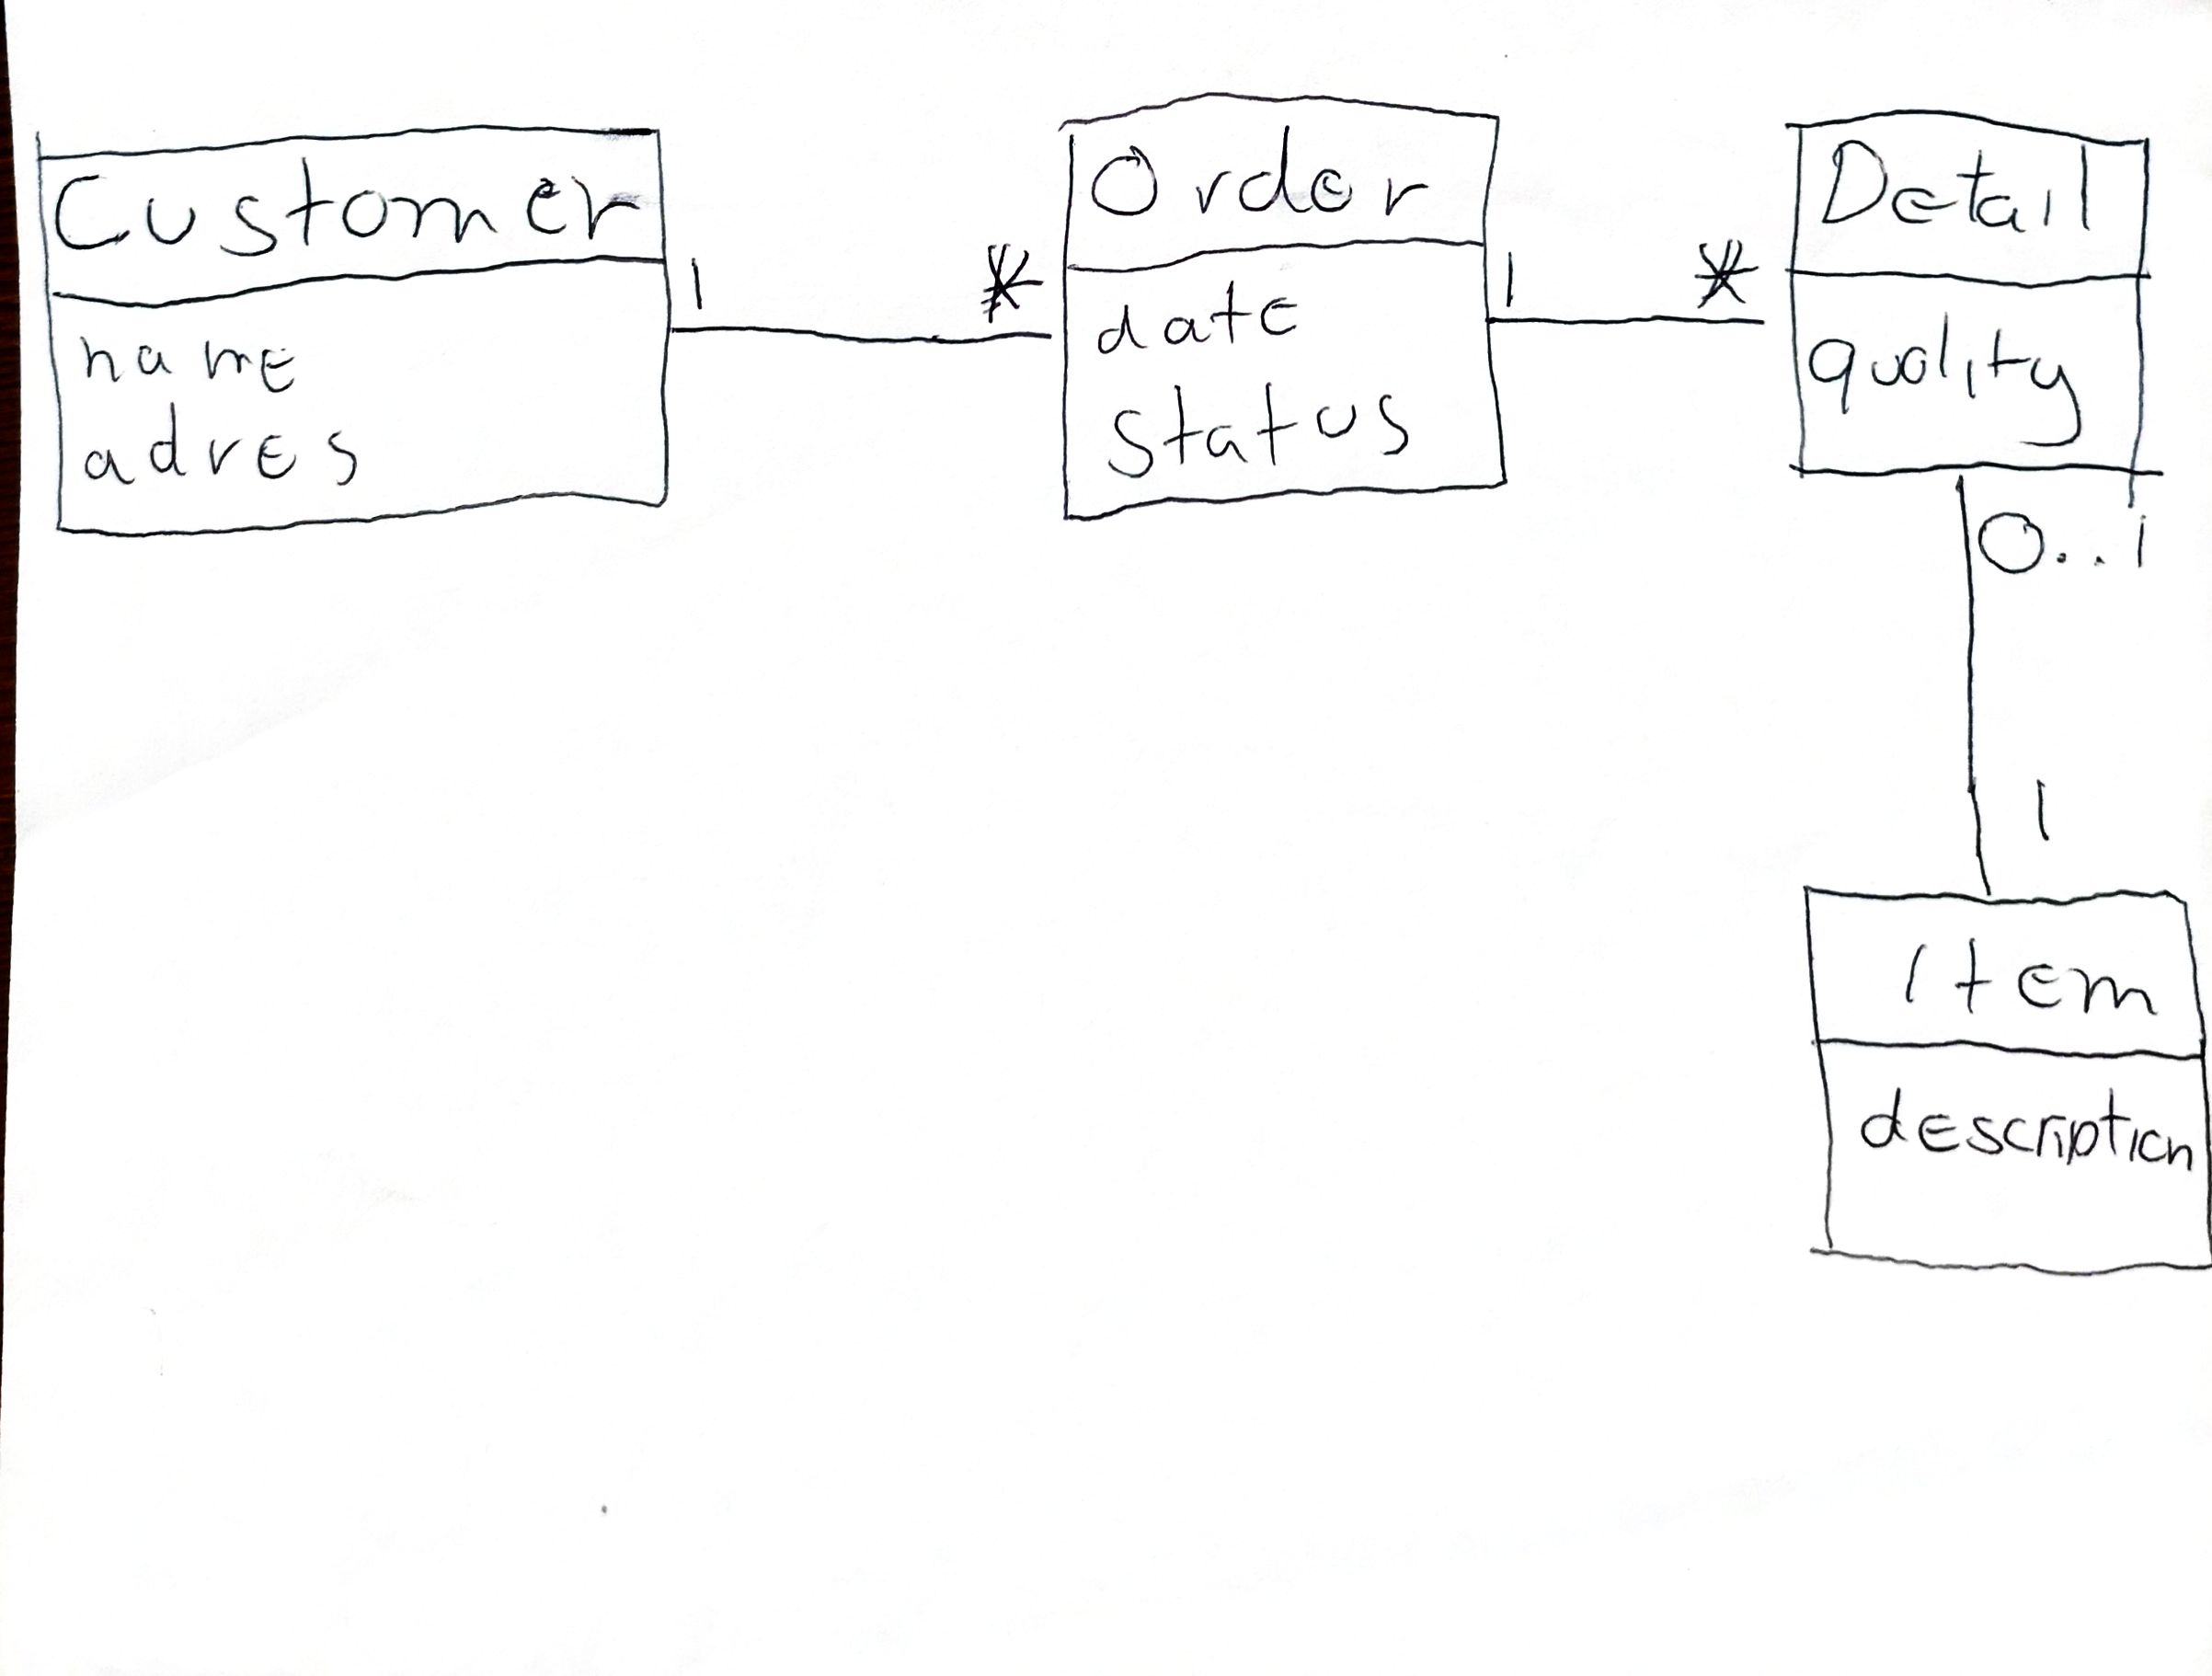 Customer
name
adres
1
*
Order
date
status
1
*
Detail
quality
0..1
1
Item
description